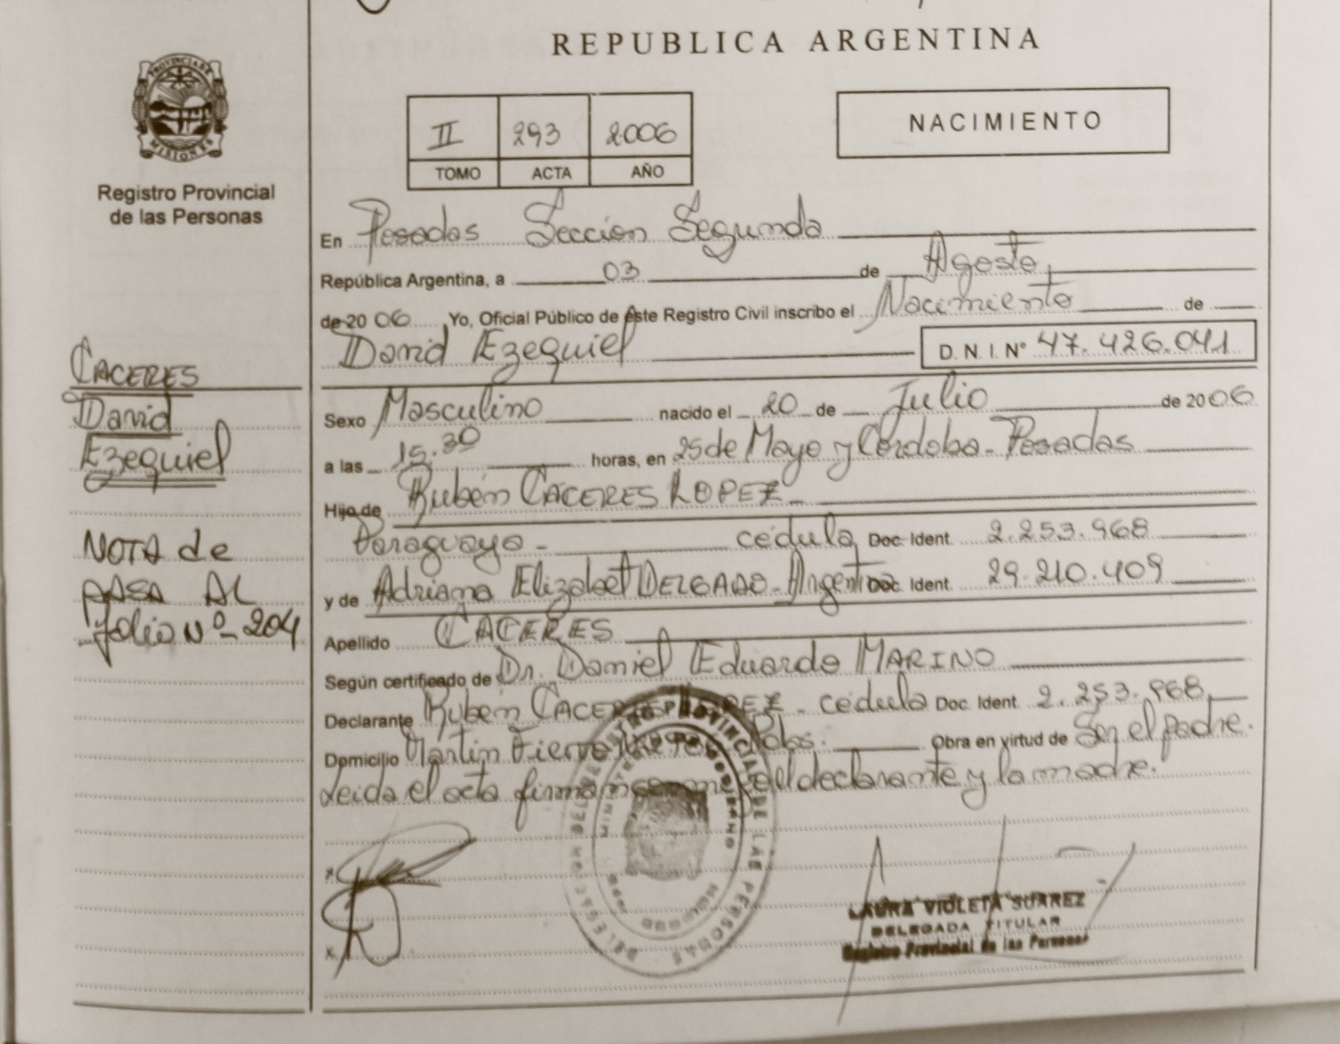 REPUBLICA ARGENTINA
PROVINCIA DE MISIONES
Registro Provincial
de las Personas
II 293 2006
TOMO ACTA AÑO
NACIMIENTO
En Posadas Sección Segunda
República Argentina, a 03 de Agosto
de 2006 Yo, Oficial Público de este Registro Civil inscribo el Nacimiento de
David Ezequiel D.N.I. Nº 47.426.041
Sexo Masculino nacido el 20 de Julio de 2006
a las 15:30 horas, en 25 de Mayo y Córdoba - Posadas
Hijo de Rubén CACERES LOPEZ -
Paraguayo - cédula Doc. Ident. 2.253.968
y de Adriana Elizabet DELGADO - Argentina Doc. Ident. 29.210.409
Apellido CACERES
Según certificado de Dr. Daniel Eduardo MARINO
Declarante Rubén CACERES LOPEZ - cédula Doc. Ident. 2.253.968
Domicilio Martín Fierro Obra en virtud de Ser el padre.
Leida el acta firman el declarante y la madre.
CACERES
David
Ezequiel
NOTA de
PASA AL
folio Nº 204
DELEGACION DEL REGISTRO PROVINCIAL DE LAS PERSONAS
MINISTERIO DE GOBIERNO
LAURA VIOLETA SUAREZ
DELEGADA TITULAR
Registro Provincial de las Personas